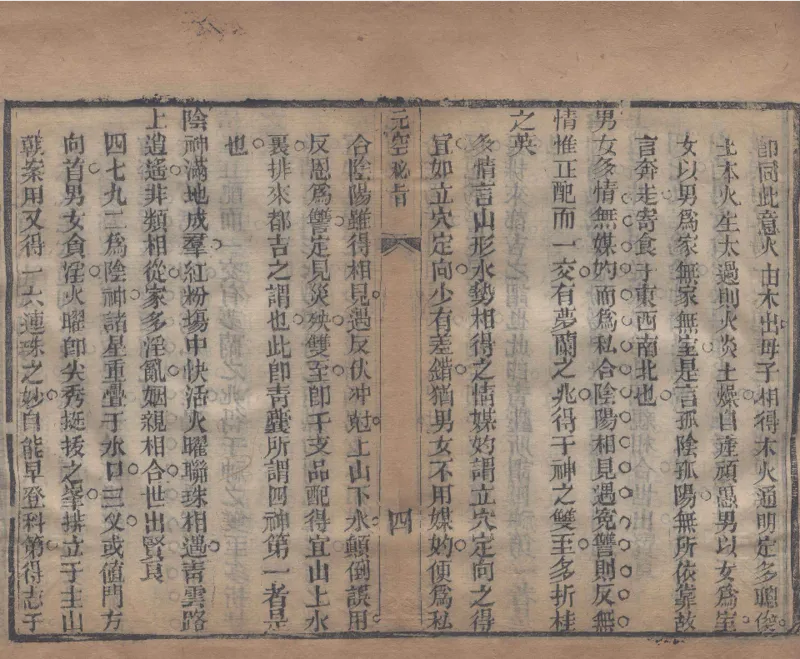 卽同此意火由木出母子相得木火通明定多聰俊
土木火生太過則火炎土燥自產頑愚男以女爲室
女以男爲家無家無室是言孤陰孤陽無所依靠故
言奔走寄食于東西南北也
男女多情無媒妁而爲私合陰陽相見遇寃讐則反無
情惟正配而一交有夢蘭之兆得干神之雙至多折桂
之英
多情言山形水勢相得之情媒妁謂立穴定向之得
宜如立穴定向少有差錯猶男女不用媒妁便爲私
元空秘旨
四
合陰陽雖得相見遇反伏冲尅上山下水顛倒誤用
反恩爲讐定見災殃雙至卽干支品配得宜山上水
裏排來都吉之謂也此卽靑囊所謂四神第一者是
也
陰神滿地成羣紅粉塲中快活火曜聯珠相遇靑雲路
上逍遙非類相從家多淫亂姻親相合世出賢良
四七九二爲陰神諸星重疊于水口三父或値門方
向首男女貪淫火曜卽尖秀挺拔之峯排立于主山
朝案用又得一六連珠之妙自能早登科第得志于